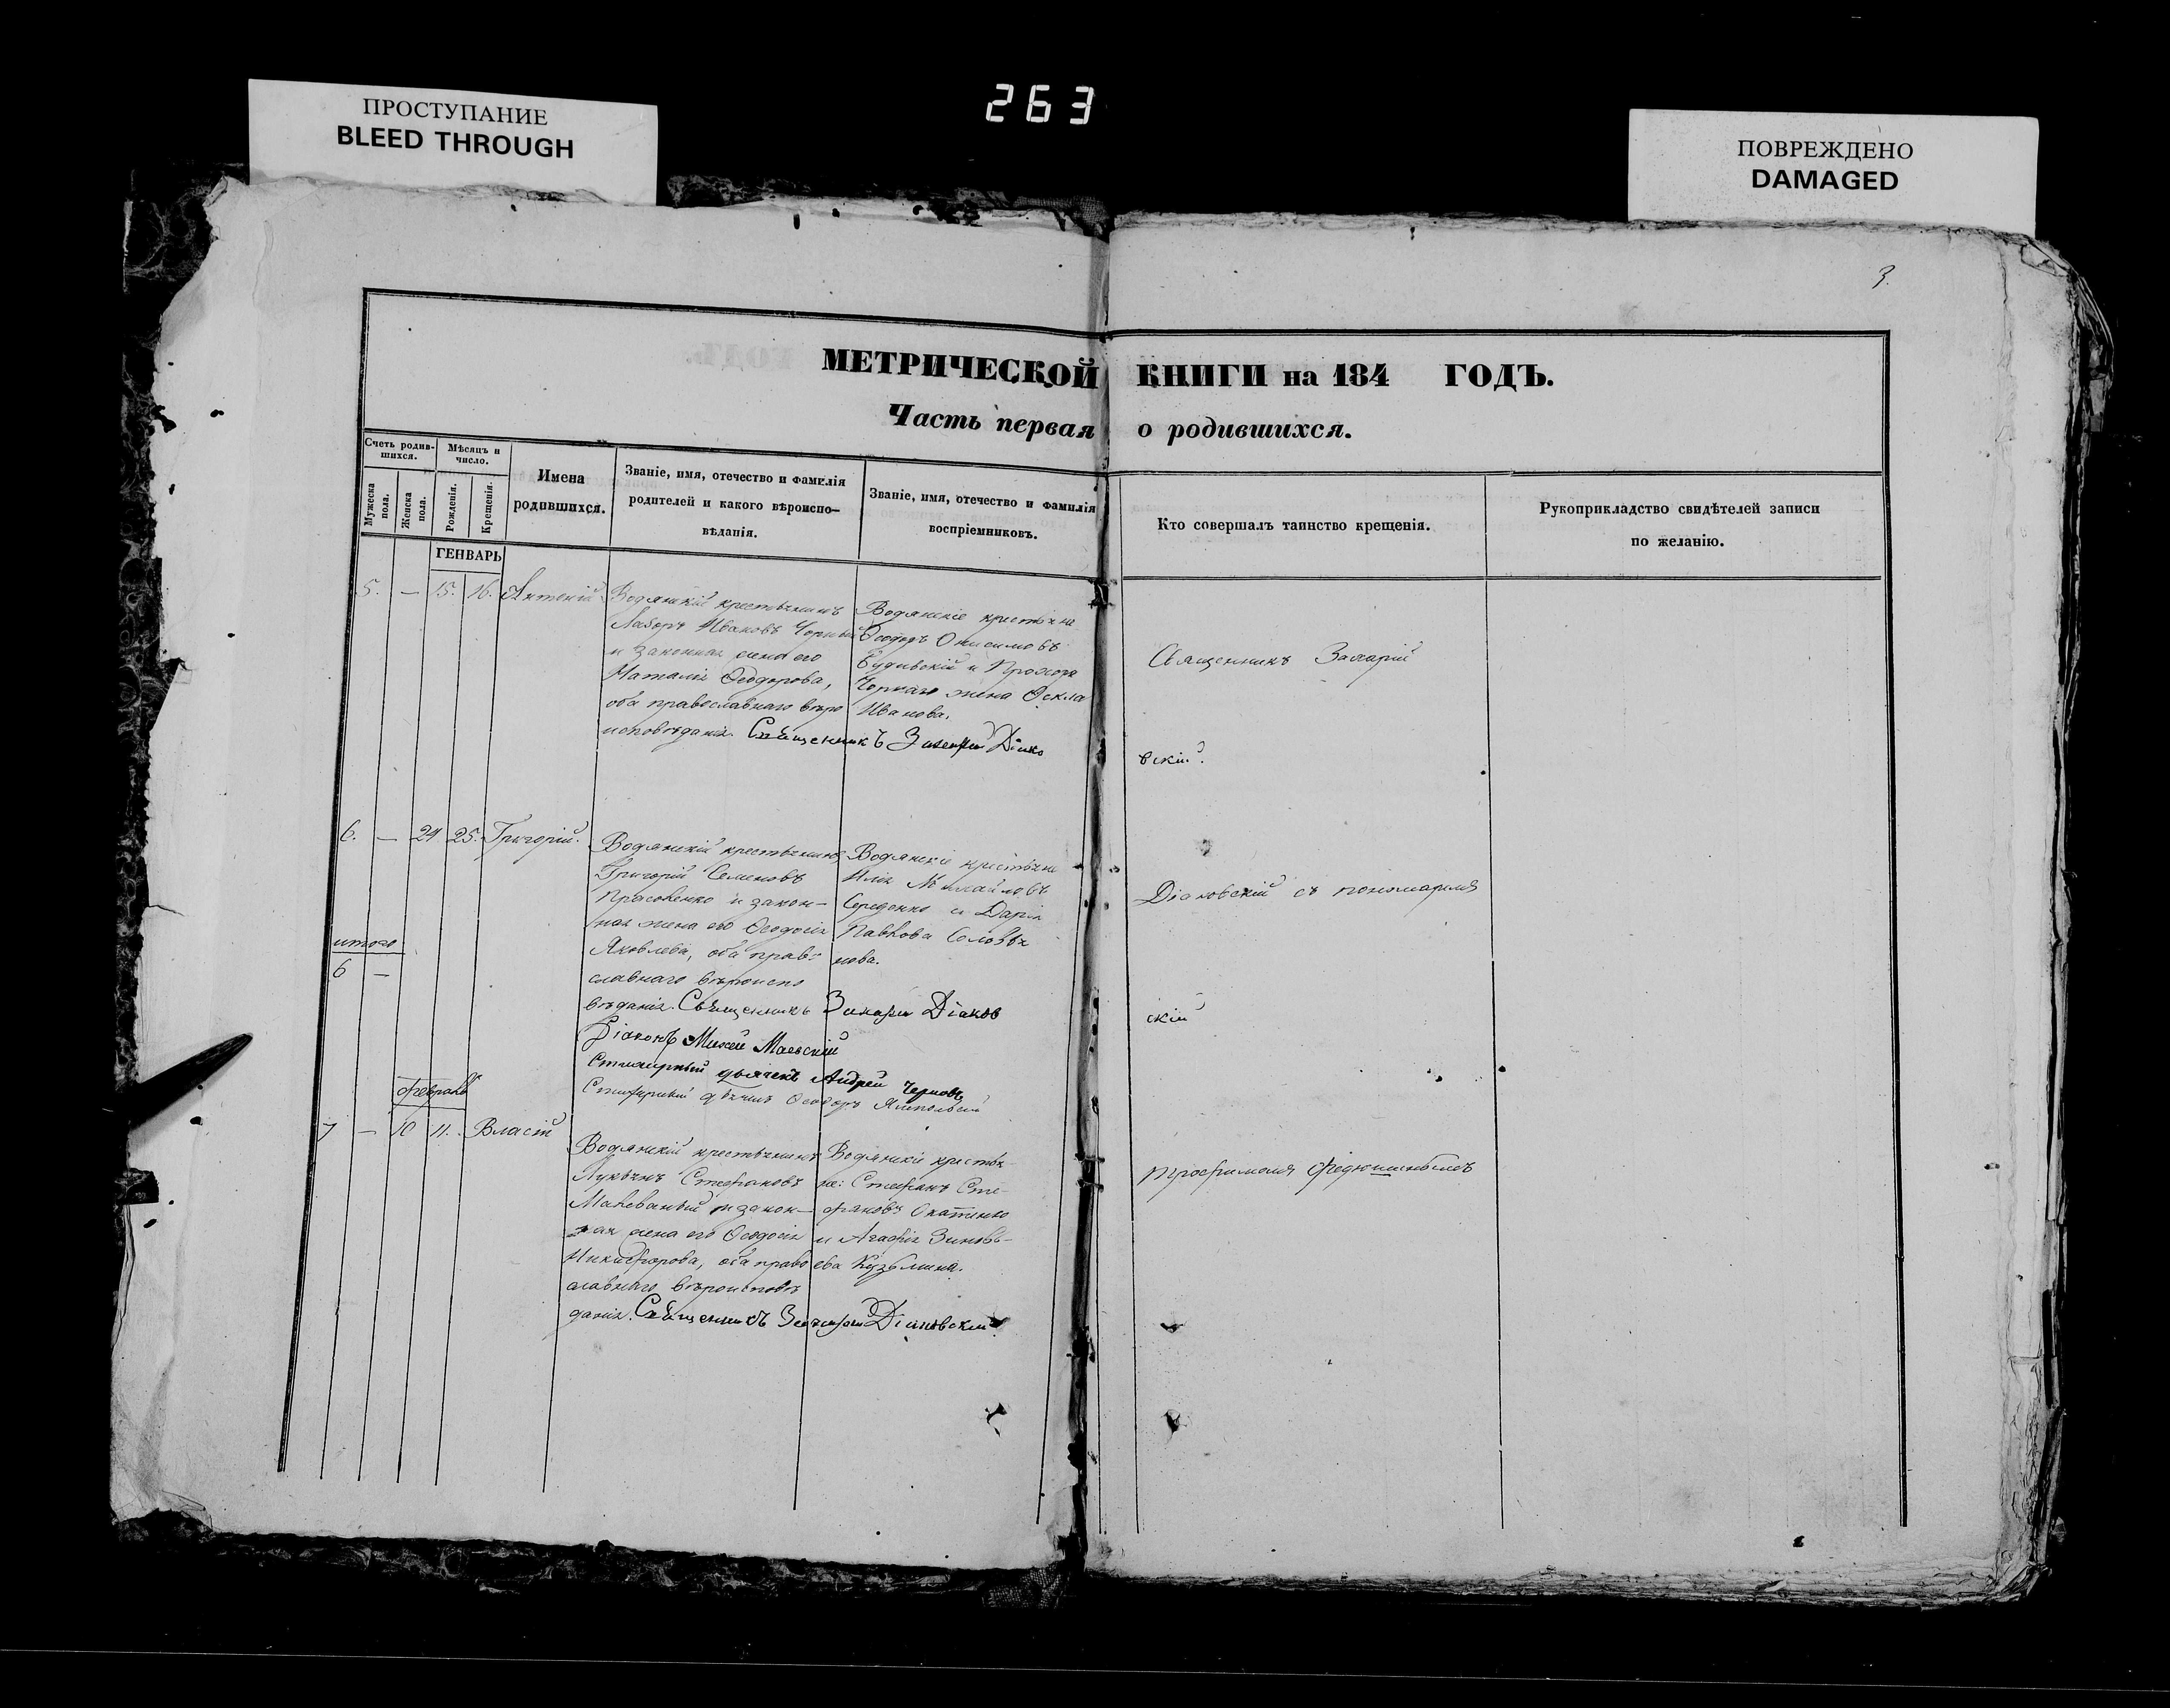 ПРОСТУПАНИЕ
BLEED THROUGH
263
ПОВРЕЖДЕНО
DAMAGED
3.
МЕТРИЧЕСКОЙ КНИГИ на 184 ГОДЪ.
Часть первая о родившихся.
Счетъ родив-
шихся.
Мужеска пола.
Женска пола.
Мѣсяцъ и
число.
Рожденія.
Крещенія.
Имена
родившихся.
Званіе, имя, отечество и фамилія
родителей и какого вѣроиспо-
вѣданія.
Званіе, имя, отечество и фамилія
воспріемниковъ.
Кто совершалъ таинство крещенія.
Рукоприкладство свидѣтелей записи
по желанію.
ГЕНВАРЬ
5. — 15. 16. Антоній
Водянскій крестьянинъ
Ивановъ Чорный
и законная жена его
Наталія Ѳеодорова,
оба православнаго вѣро
исповѣданія. Священникъ Захарій Діако
Водянскіе крестьяне
Ѳеодоръ Онисимовъ
и Прохора
Чорнаго жена Ѳекла
Иванова.
Священникъ Захарій
вскій.
6. — 24 25. Григорій.
Водянскій крестьянинъ
Григорій Семеновъ
и закон-
ная жена его Ѳеодосія
Яковлева, оба прав-
славнаго вѣроиспо
вѣданія. Священникъ Захарій Діаков
Водянскіе крестьяне
Илія Михайловъ
Середенко и Дарія
Павлова
нова.
Діаковскій съ пономаремъ
скій
итого
6 —
Діаконъ Михей Маевскій
дьячекъ Андрей Черновъ
Ѳеодоръ
февраль
7 — 10 11. Власій
Водянскій крестьянинъ
Лукьянъ Стефановъ
и закон-
ная жена его Ѳеодосія
Никифорова, оба право
славнаго вѣроисповѣ
данія. Священникъ Захарій Діаковскій
Водянскіе крестья-
не: Стефанъ Сте-
фановъ
и Агафія Зиновь-
ева Кузьмина.